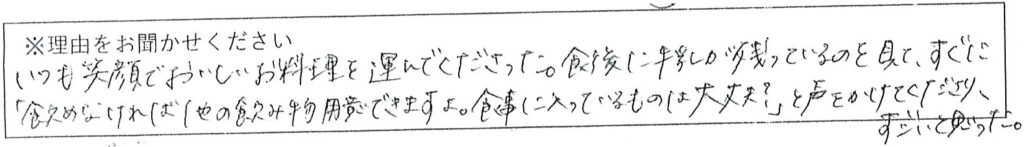 ※理由をお聞かせください
いつも笑顔でおいしいお料理を運んでくださった。食後に牛乳が残っているのを見て、すぐに
「飲めなければ他の飲み物用意できますよ。食事に入っているものは大丈夫?」と声をかけてくださり、
すごいと思った。